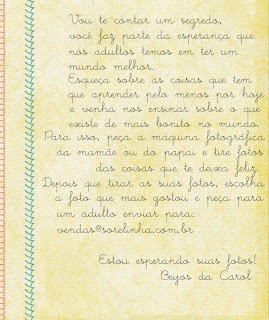 Vou te contar um segredo,
você faz parte da esperança que
nós adultos temos em ter um
mundo melhor.
Esqueça sobre as coisas que tem
que aprender pelo menos por hoje
e venha nos ensinar sobre o que
existe de mais bonito no mundo.
Para isso, peça a máquina fotográfica
da mamãe ou do papai e tire fotos
das coisas que te deixa feliz.
Depois que tirar as suas fotos, escolha
a foto que mais gostou e peça para
um adulto enviar para:
vendas@sorelinha.com.br
Estou esperando suas fotos!
Beijos da Carol